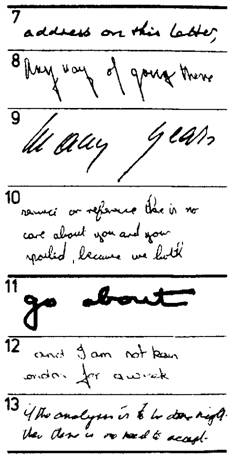 7
address on this letter,
8
Any way of going there
9
Many years
10
or reference there is no
care about you and your
spoiled, because we both
11
go about
12
and I am not keen
for a week
13
if the analysis is to be done right
then there is no need to accept